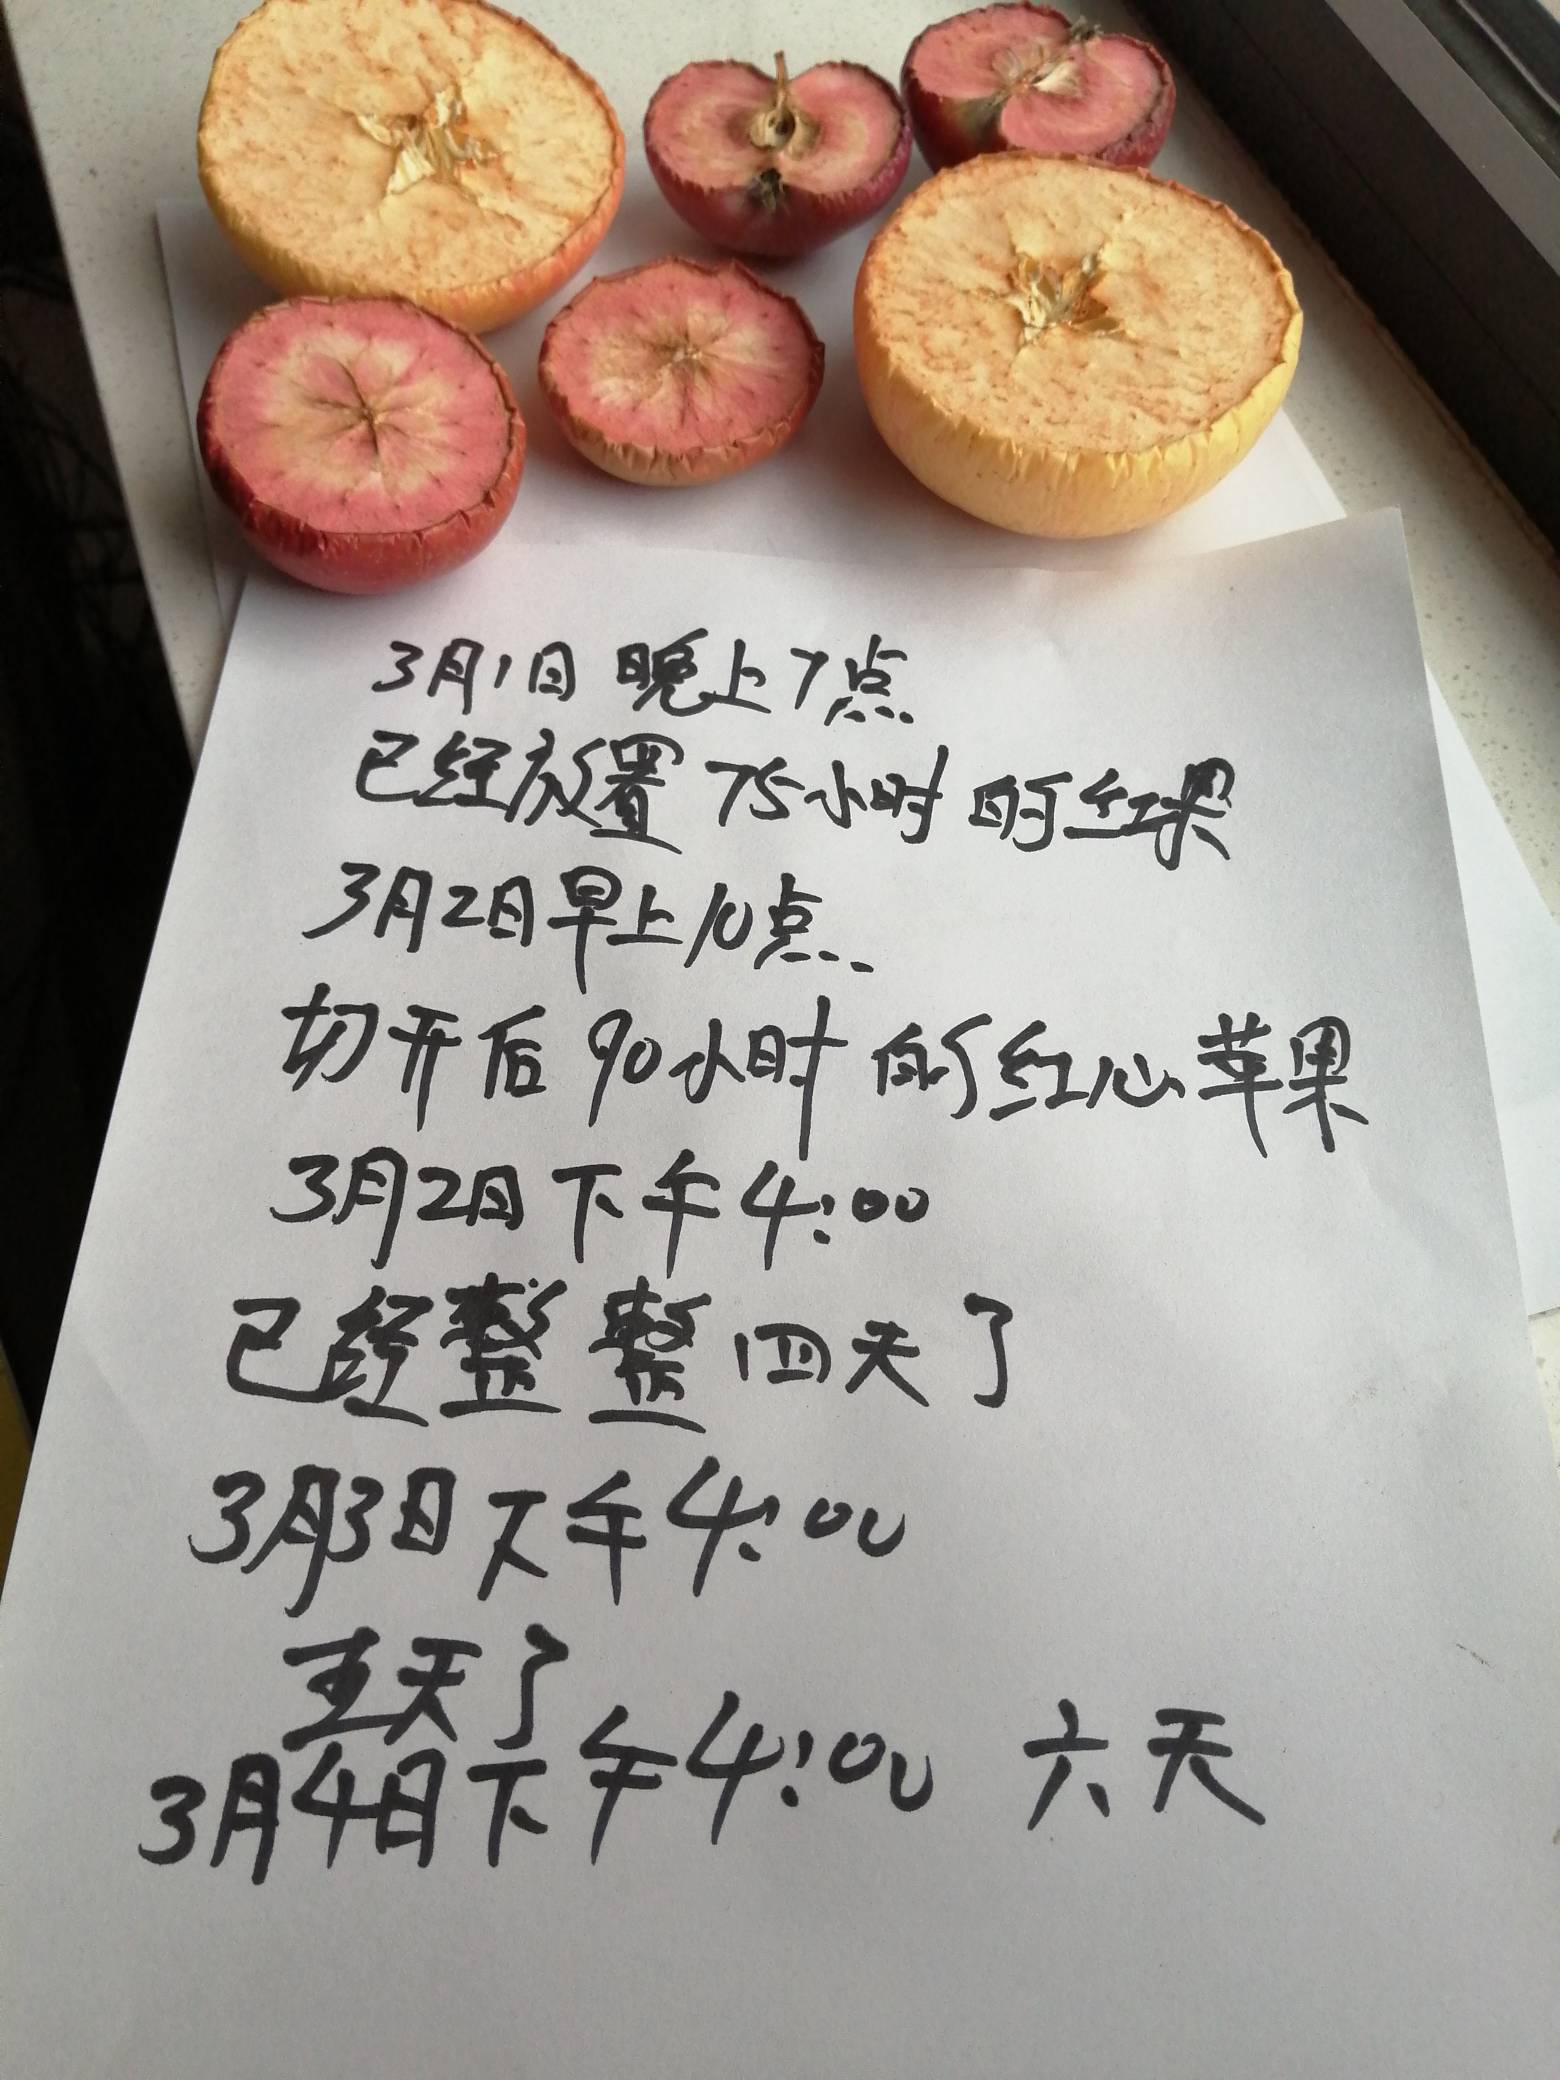 3月1日 晚上7点
已经放置 75小时 的红果
3月2日早上10点
切开后 90小时 的红心苹果
3月2日 下午4:00
已经整整四天了
3月3日下午4:00
五天了
3月4日下午4:00 六天